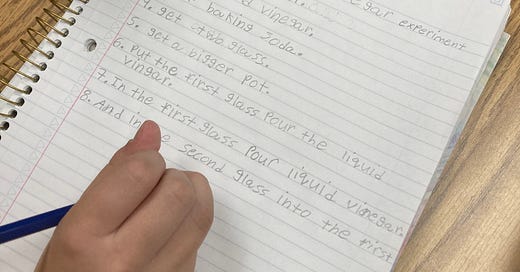 egar experiment
d vinegar.
baking soda.
4. get two glass.
5. get a bigger pot.
6. Put the first glass Pour the liquid
vingar.
7. In the first glass Pour liquid vinegar.
8. And in second glass into the first